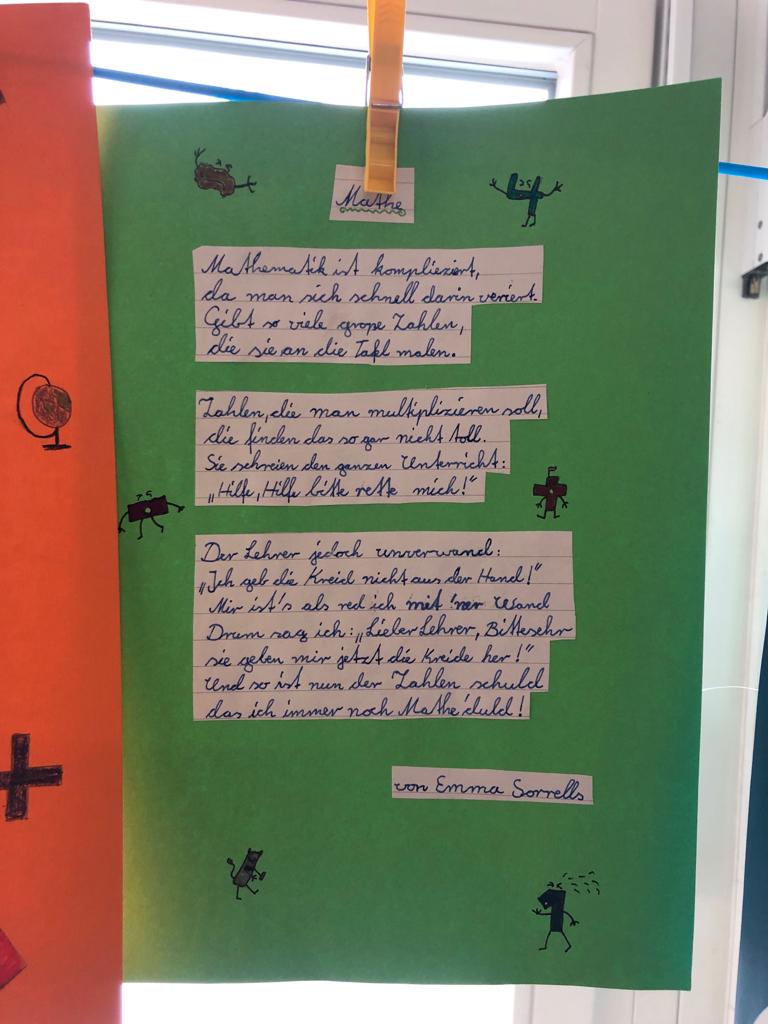 Mathe
Mathematik ist komplieziert,
da man sich schnell darin veriert.
Gibt so viele große Zahlen,
die sie an die Tafl malen.
Zahlen, die man multiplizieren soll,
die finden das so gar nicht toll.
Sie schreien den ganzen Unterricht:
„Hilfe, Hilfe bitte rette mich!“
Der Lehrer jedoch unverwand:
„Ich geb die Kreid nicht aus der Hand!“
Mir ist's als red ich mit 'ner Wand
Drum sag ich: „Lieber Lehrer, Bittesehr
sie geben mir jetzt die Kreide her!“
Und so ist nun der Zahlen schuld
das ich immer noch Mathe duld!
von Emma Sorrells